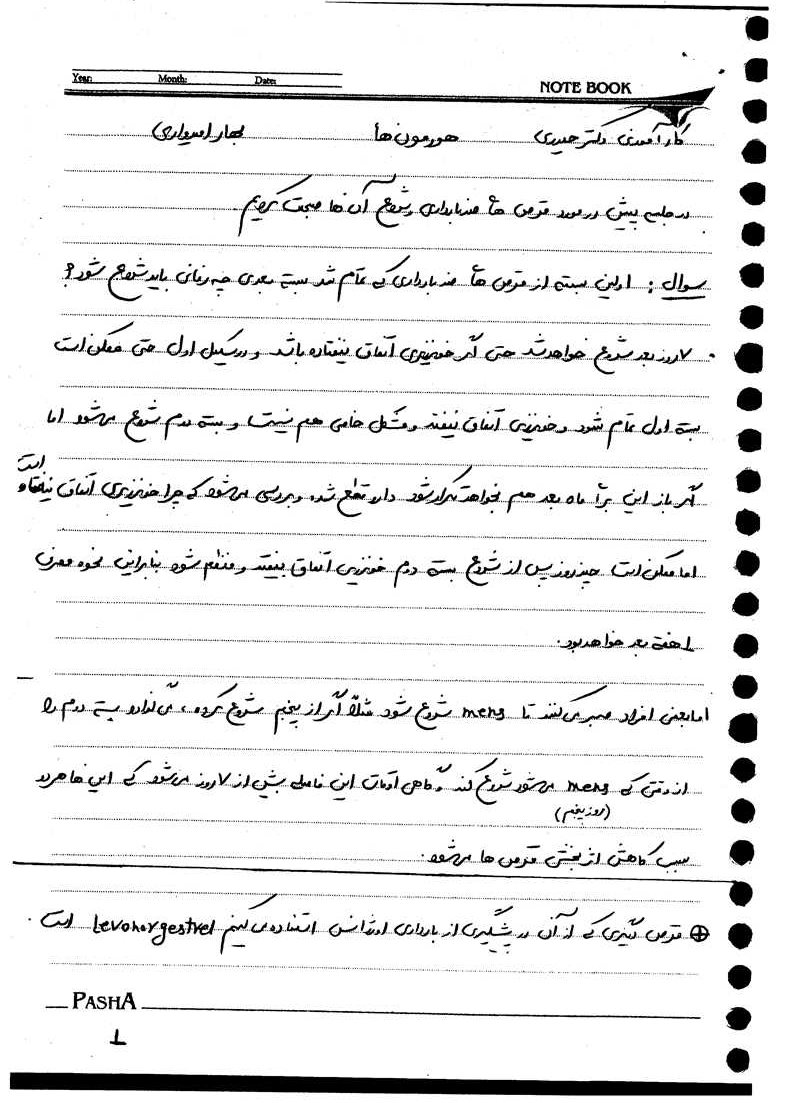 Year: Month: Date:
NOTE BOOK
کارآموزی دکتر حیدری هورمون‌ها بهار امیدواری
در جلسه پیش در مورد قرص های ضدبارداری و شروع آن ها صحبت کردیم.
سوال: اولین بسته از قرص های ضدبارداری که تمام شد بسته بعدی چه زمانی باید شروع شود؟
۷ روز بعد شروع خواهد شد حتی اگر خونریزی اتفاق نیفتاده باشد و در سیکل اول حتی ممکن است
بسته اول تمام شود و خونریزی اتفاق نیفتد و مشکل خاصی هم نیست و بسته دوم شروع می‌شود اما
اگر باز این برای ماه بعد هم بخواهد تکرار شود دارو قطع شده و بررسی می‌شود که چرا خونریزی اتفاق نیافتاده است
اما ممکن است چند روز پس از شروع بسته دوم خونریزی اتفاق بیفتد و منظم شود بنابراین نحوه مصرف
۱ هفته بعد خواهد بود.
اما بعضی افراد صبر می‌کنند تا mens شروع شود مثلاً اگر از پنجم شروع کرده، می‌گذارد بسته دوم را
از وقتی که mens می‌شود شروع کند و گاهی اوقات این فاصله بیش از ۷ روز می‌شود که این ها هر دو
(روز پنجم)
سبب کاهش اثربخشی قرص ها می‌شود.
⊕ قرص دیگری که از آن در پیشگیری از بارداری اورژانسی استفاده می‌کنیم levonorgestrel است.
PASHA
1